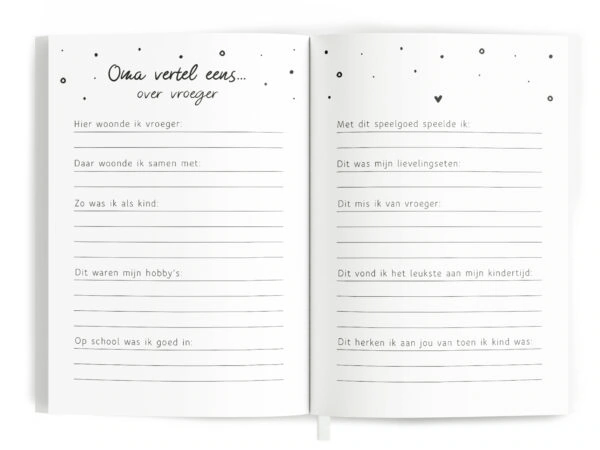 Oma vertel eens...
over vroeger
Hier woonde ik vroeger:
Daar woonde ik samen met:
Zo was ik als kind:
Dit waren mijn hobby's:
Op school was ik goed in:
Met dit speelgoed speelde ik:
Dit was mijn lievelingseten:
Dit mis ik van vroeger:
Dit vond ik het leukste aan mijn kindertijd:
Dit herken ik aan jou van toen ik kind was: